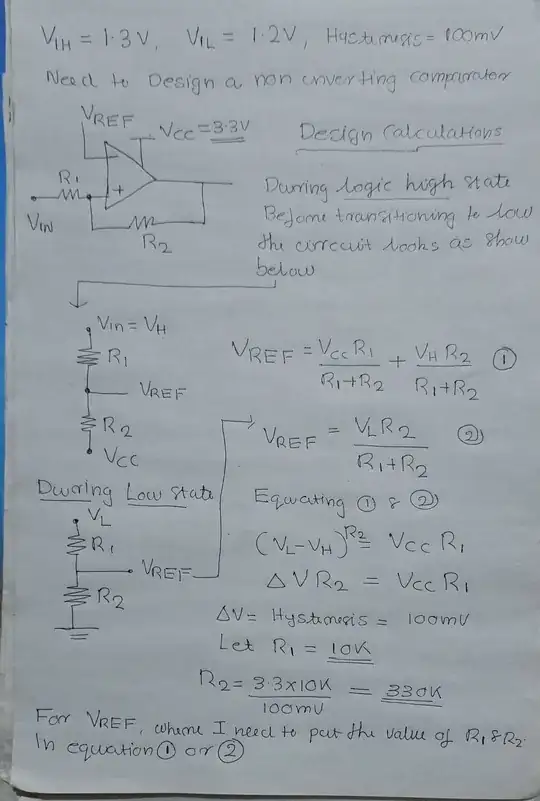 VIH = 1.3V, VIL = 1.2V, Hysteresis = 100mV
Need to Design a non inverting comparator
VREF
VCC = 3.3V
R1
+
VIN
R2
Design Calculations
During logic high state
Before transitioning to low
the circuit looks as show
below
Vin = VH
R1
VREF
R2
VCC
VREF = VCC R1 / R1+R2 + VH R2 / R1+R2 ①
VREF = VL R2 / R1+R2 ②
During Low state
VL
R1
VREF
R2
Equating ① & ②
(VL-VH) R2 = VCC R1
ΔV R2 = VCC R1
ΔV = Hysteresis = 100mV
Let R1 = 10K
R2 = 3.3x10K / 100mV = 330K
For VREF, where I need to put the value of R1 & R2.
In equation ① or ②